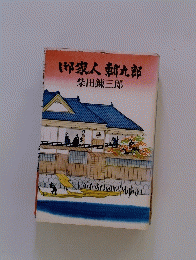 御家人斬九郎
柴田錬三郎